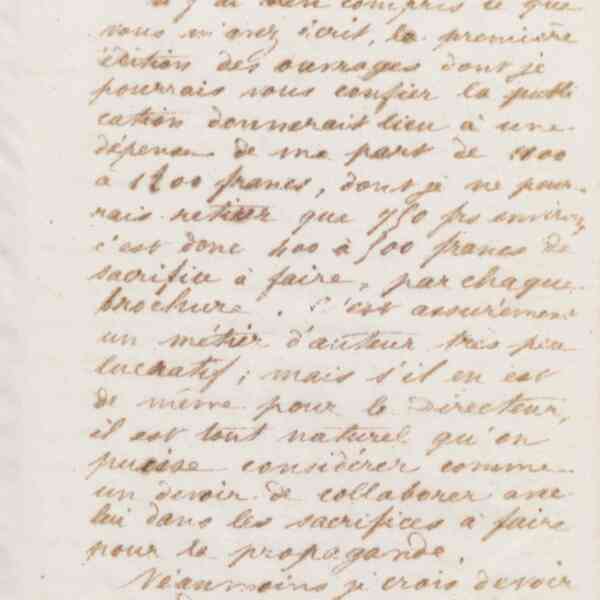 compris ce que
vous m'avez écrit, la première
édition des ouvrages dont je
pourrais vous confier la publi
cation donnerait lieu à une
dépense de ma part de 1100
à 1200 francs, dont je ne pour-
rais retirer que 750 frs environ,
c'est donc 400 à 500 francs de
sacrifice à faire, par chaque
brochure. C'est assurément
un métier d'auteur très peu
lucratif; mais s'il en est
de même pour le Directeur,
il est tout naturel qu'on
puisse considérer comme
un devoir de collaborer avec
lui dans les sacrifices à faire
pour la propagande.
Néanmoins je crois devoir